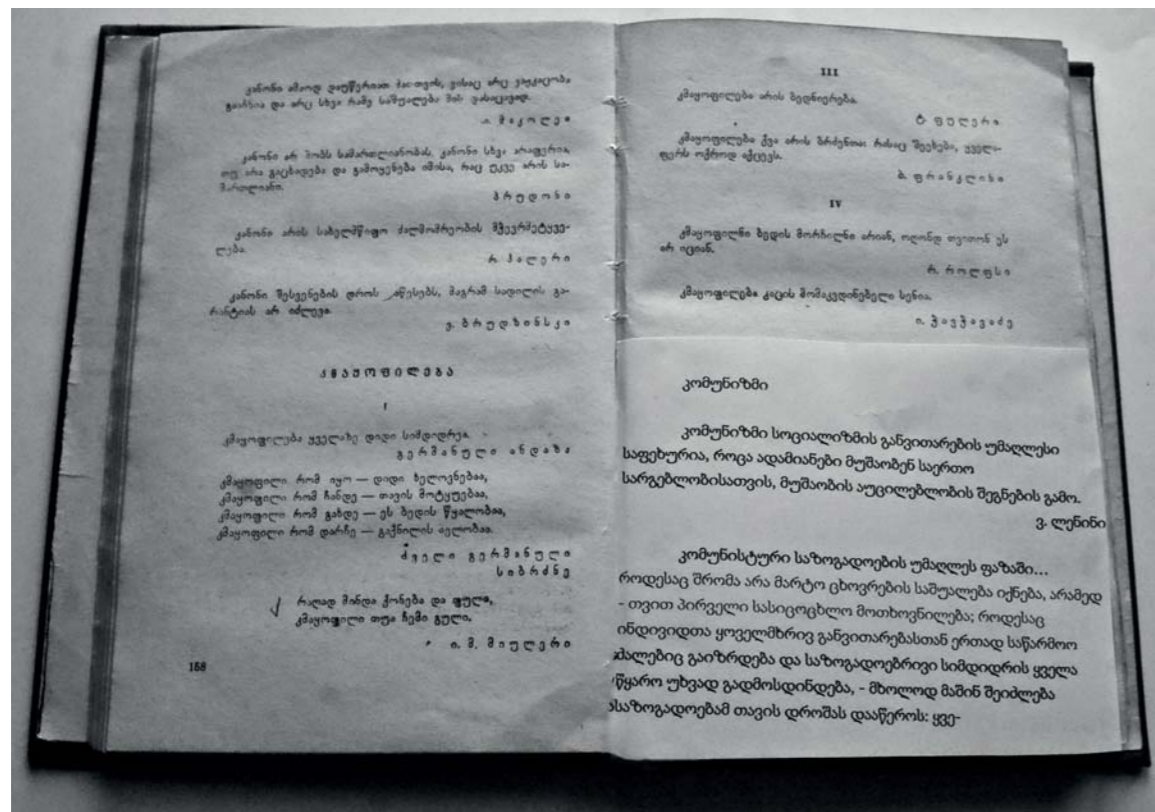 კანონი ამაოდ დაუწერიათ მათთვის, ვისაც არც ვაჟკაცობა
გააჩნია და არც სხვა რამე საშუალება მის დასაცავად.
მაკოლეი
კანონი არ შობს სამართლიანობას. კანონი სხვა არაფერია,
თუ არა გაცხადება და გამოყენება იმისა, რაც უკვე არის სა-
მართლიანი.
პრუდონი
კანონი არის სახელმწიფო ძალმომრეობის მჭევრმეტყვე-
ლება.
რ. ჰალერი
კანონი შესვენების დროს აწესებს, მაგრამ სადილის გა-
რანტიას არ იძლევა.
ვ. ბრუდზინსკი
კმაყოფილება
I
კმაყოფილება ყველაზე დიდი სიმდიდრეა.
გერმანული ანდაზა
კმაყოფილი რომ იყო — დიდი ხელოვნებაა,
კმაყოფილი რომ ჩანდე — თავის მოტყუებაა,
კმაყოფილი რომ გახდე — ეს ბედის წყალობაა,
კმაყოფილი რომ დარჩე — გაქნილის აელობაა.
ძველი გერმანული
სიბრძნე
რაღად მინდა ქონება და ფული,
კმაყოფილი თუა ჩემი გული,
ი. მ. მიულერი
158
III
კმაყოფილება არის ბედნიერება.
ტ. ფულერი
კმაყოფილება ქვა არის ბრძენთა: რასაც შეეხება, ყველა-
ფერს ოქროდ აქცევს.
ბ. ფრანკლინი
IV
კმაყოფილნი ბედის მორჩილნი არიან, ოღონდ თვითონ ეს
არ იციან.
რ. როლფსი
კმაყოფილება კაცის მომაკვდინებელი სენია.
ი. ჭავჭავაძე
კომუნიზმი
კომუნიზმი სოციალიზმის განვითარების უმაღლესი
საფეხურია, როცა ადამიანები მუშაობენ საერთო
სარგებლობისათვის, მუშაობის აუცილებლობის შეგნების გამო.
ვ. ლენინი
კომუნისტური საზოგადოების უმაღლეს ფაზაში...
როდესაც შრომა არა მარტო ცხოვრების საშუალება იქნება, არამედ
- თვით პირველი სასიცოცხლო მოთხოვნილება; როდესაც
ინდივიდთა ყოველმხრივ განვითარებასთან ერთად საწარმოო
ძალებიც გაიზრდება და საზოგადოებრივი სიმდიდრის ყველა
წყარო უხვად გადმოსდინდება, - მხოლოდ მაშინ შეიძლება
ასაზოგადოებამ თავის დროშას დააწეროს: ყვე-